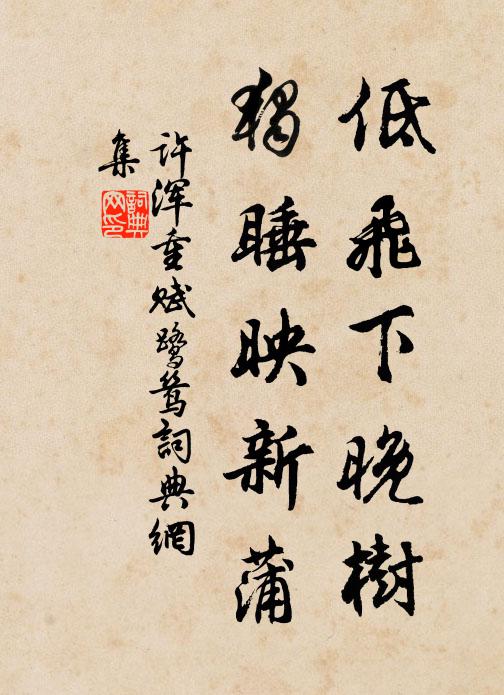 低飛下晚樹
獨睡映新蒲
許渾重賦鷺鷥詞典網
集
詞典
网印